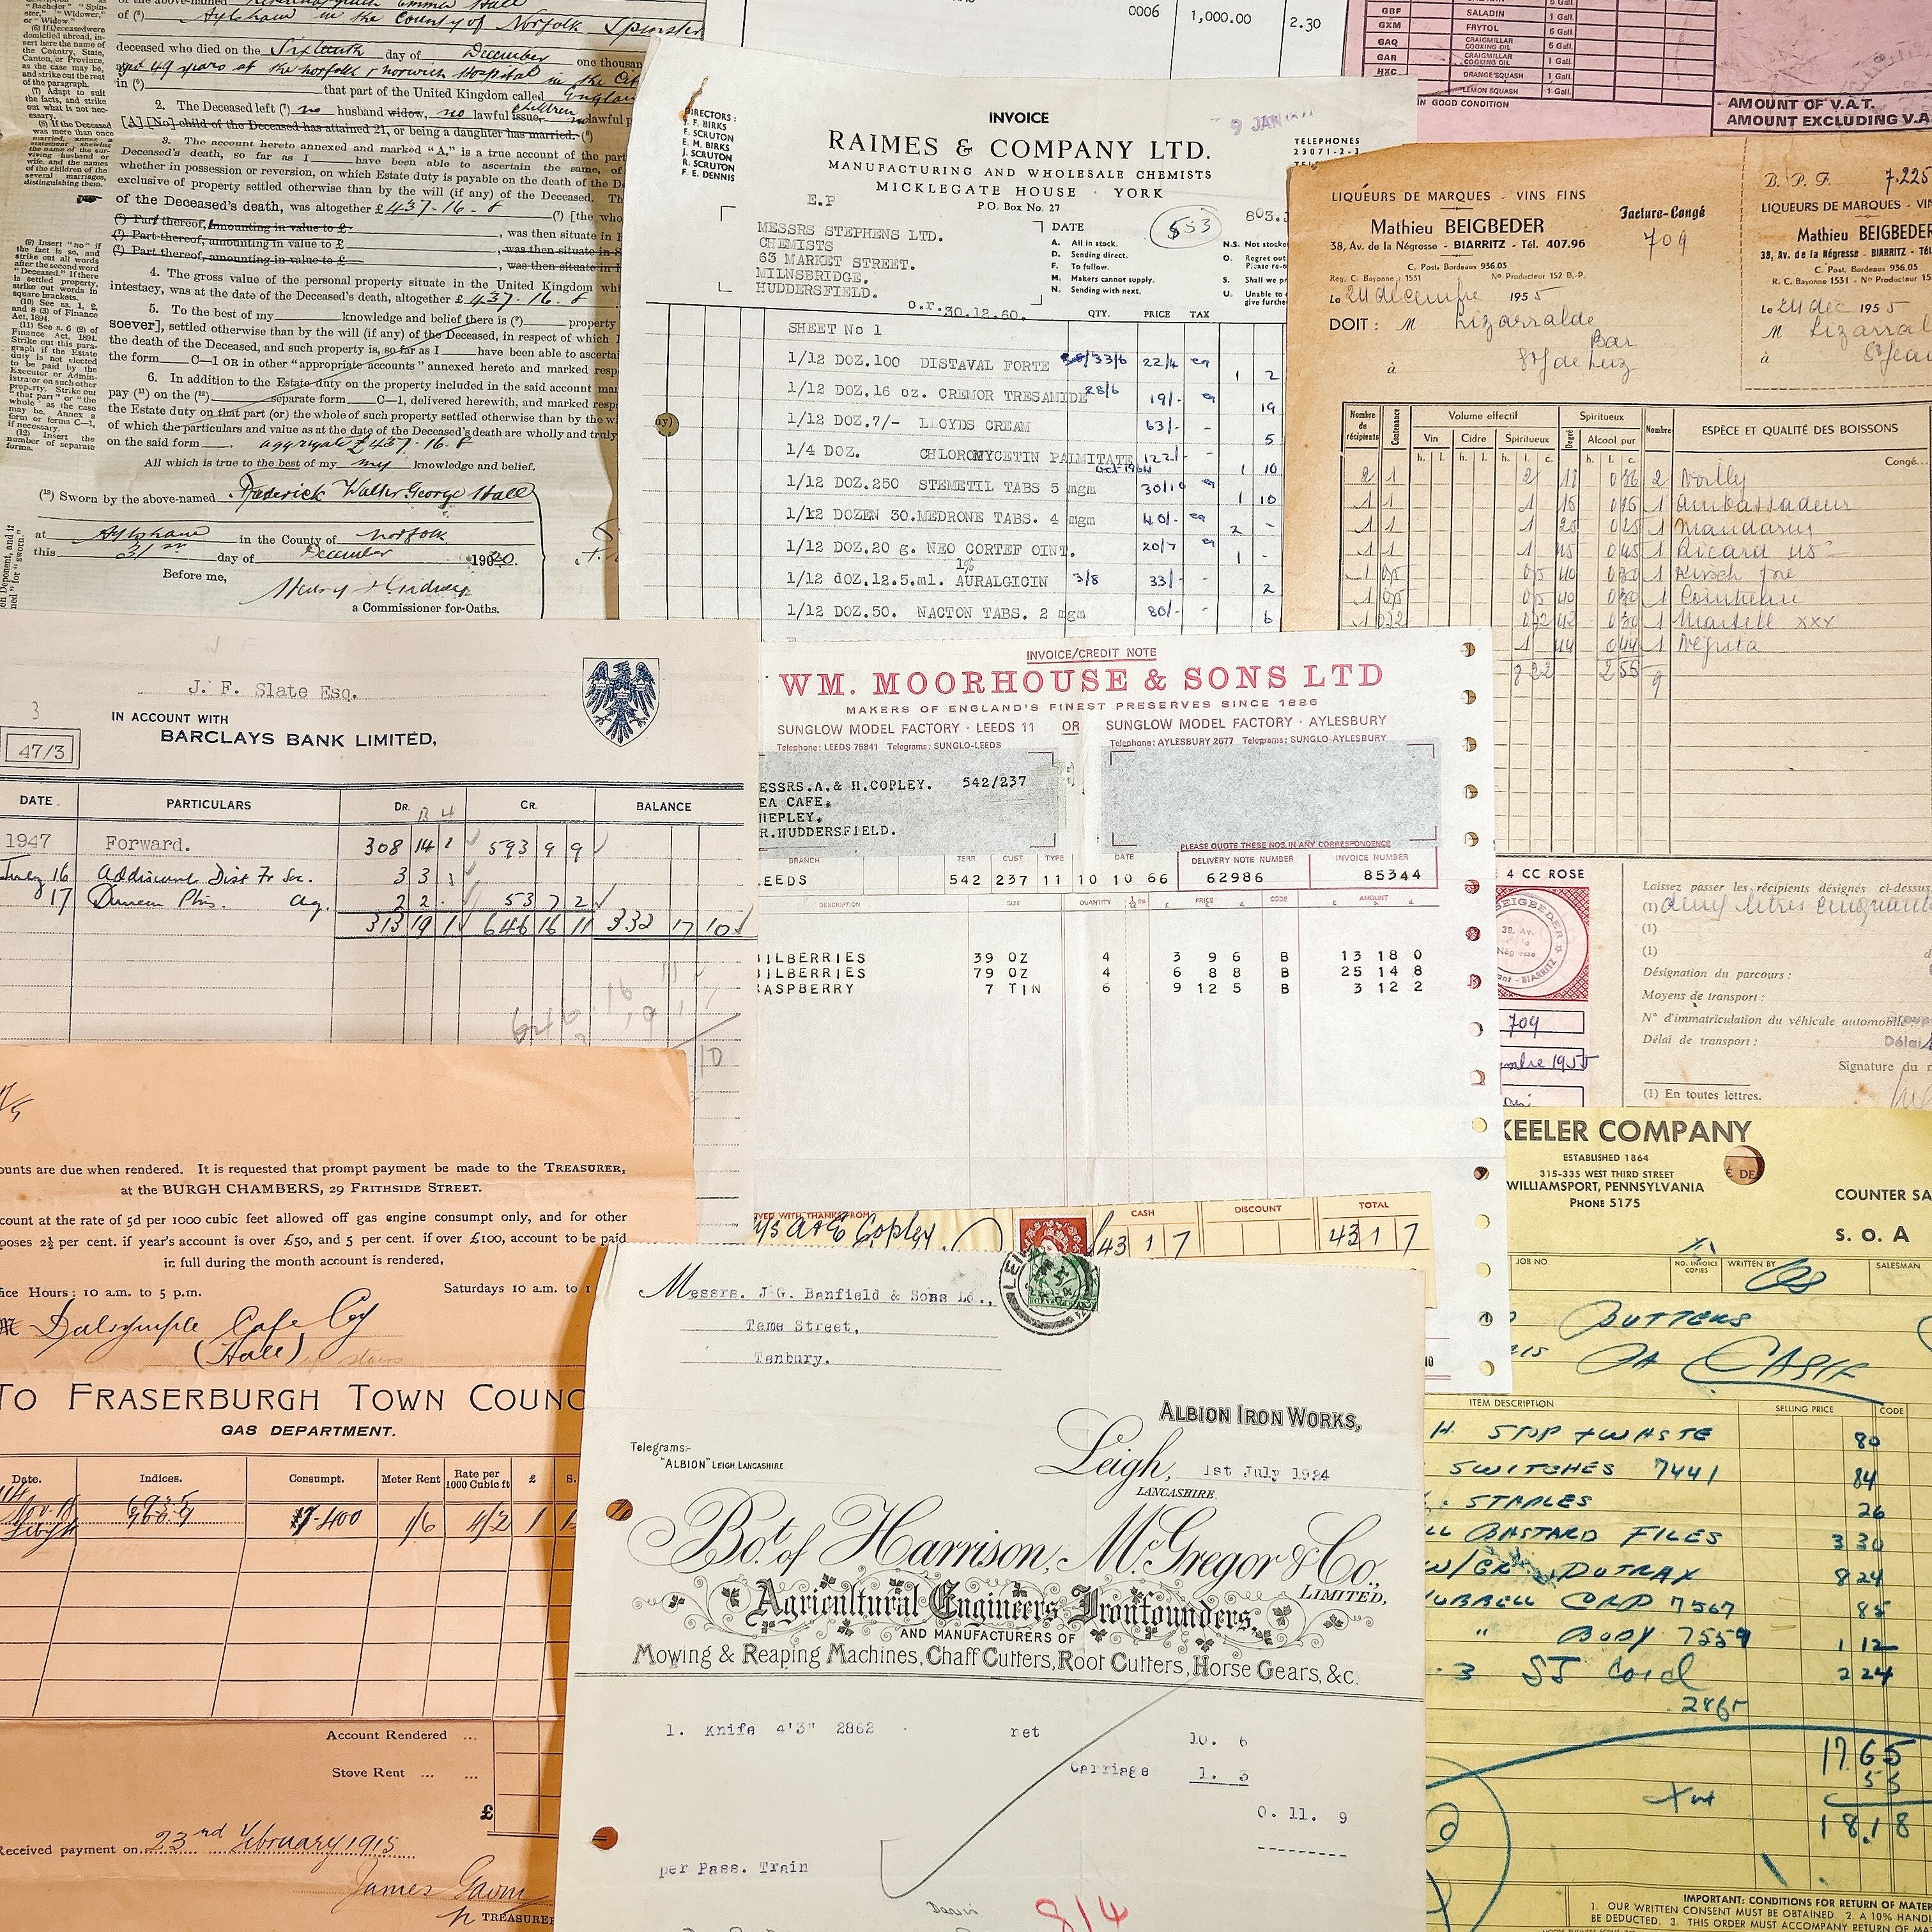 of the above-named
of (⁴) Aylsham in the County of Norfolk Spinster
deceased who died on the Sixteenth day of December one thousan
aged 49 years at the Norfolk & Norwich Hospital in the
in (⁶) that part of the United Kingdom called England
2. The Deceased left (⁷) no husband widow, no lawful issue, children no lawful p
[A] [No] child of the Deceased has attained 21, or being a daughter has married. (⁸)
3. The account hereto annexed and marked "A," is a true account of the part
Deceased's death, so far as I have been able to ascertain the same, of
whether in possession or reversion, on which Estate duty is payable on the death of the D
exclusive of property settled otherwise than by the will (if any) of the Deceased. Th
of the Deceased's death, was altogether £437-16-8 (⁹) [the who
(⁹) Part thereof, amounting in value to £ , was then situate in
(⁹) Part thereof, amounting in value to £ , was then situate in S
(⁹) Part thereof, amounting in value to £ , was then situate in
4. The gross value of the personal property situate in the United Kingdom whi
intestacy, was at the date of the Deceased's death, altogether £437-16-8
5. To the best of my knowledge and belief there is (⁹) property
soever], settled otherwise than by the will (if any) of the Deceased, in respect of which
the death of the Deceased, and such property is, so far as I have been able to ascertai
the form C—1 OR in other "appropriate accounts" annexed hereto and marked resp
6. In addition to the Estate duty on the property included in the said account mar
pay (¹¹) on the (¹²) separate form C—1, delivered herewith, and marked resp
the Estate duty on that part (or) the whole of such property settled otherwise than by the wi
of which the particulars and value as at the date of the Deceased's death are wholly and truly
on the said form aggregate £437-16-8
All which is true to the best of my my knowledge and belief.
(¹³) Sworn by the above-named Frederick Walter George Hall
at Aylsham in the County of Norfolk
this 31st day of December 1920.
Before me,
a Commissioner for Oaths.
0006 1,000.00 2.30
GBF SALADIN 1 Gall.
GXM FRYTOL 5 Gall.
GAQ CRAIGMILLAR COOKING OIL 5 Gall.
GAR CRAIGMILLAR COOKING OIL 1 Gall.
HXC ORANGE SQUASH 1 Gall.
LEMON SQUASH 1 Gall.
IN GOOD CONDITION
AMOUNT OF V.A.T.
AMOUNT EXCLUDING V.A
DIRECTORS :
J. F. BIRKS
F. SCRUTON
E. M. BIRKS
J. SCRUTON
R. SCRUTON
F. E. DENNIS
INVOICE
9 JAN
RAIMES & COMPANY LTD.
MANUFACTURING AND WHOLESALE CHEMISTS
MICKLEGATE HOUSE · YORK
P.O. Box No. 27
TELEPHONES
23071-2-3
E.P
MESSRS STEPHENS LTD.
CHEMISTS
63 MARKET STREET.
MILNSBRIDGE.
HUDDERSFIELD.
o.r.30.12.60.
DATE 553 803.
A. All in stock.
D. Sending direct.
F. To follow.
M. Makers cannot supply.
N. Sending with next.
N.S. Not stocke
O. Regret out
Please re-o
S. Shall we p
U. Unable to
give further
QTY. PRICE TAX
SHEET No 1
1/12 DOZ.100 DISTAVAL FORTE 33/6 22/4 ea 1 2
1/12 DOZ.16 oz. CREMOR TRESAMIDE 28/6 19/- ea 19
1/12 DOZ.7/- LLOYDS CREAM 63/- - 5
1/4 DOZ. CHLOROMYCETIN PALMITATE 122/- 1 10
Oct 1964
1/12 DOZ.250 STEMETIL TABS 5 mgm 30/10 ea 1 10
1/12 DOZEN 30.MEDRONE TABS. 4 mgm 40/- ea 2 -
1/12 DOZ.20 g. NEO CORTEF OINT. 20/7 ea 1 -
1%
1/12 dOZ.12.5.ml. AURALGICIN 3/8 33/- - 2
1/12 DOZ.50. NACTON TABS. 2 mgm 80/- - 6
LIQUEURS DE MARQUES - VINS FINS
Mathieu BEIGBEDER
38, Av. de la Négresse - BIARRITZ - Tél. 407.96
C. Post. Bordeaux 936.05
Reg. C. Bayonne : 1531 No Producteur 152 B.-P.
Facture-Congé
709
Le 24 décembre 1955
DOIT : M Lizarralde
Bar
à St Jean de Luz
B. P. F. 7.225
LIQUEURS DE MARQUES - VIN
Mathieu BEIGBEDER
38, Av. de la Négresse - BIARRITZ - Tél
C. Post. Bordeaux 936.05
R. C. Bayonne 1531 - No Producteur
Le 24 dec 1955
M Lizarral
à St Jean
Nombre de récipients Contenance Volume effectif Spiritueux Nombre ESPÈCE ET QUALITÉ DES BOISSONS
Vin Cidre Spiritueux Degré Alcool pur
Congé...
2 1 2 18 0 36 2 Noilly
1 1 1 15 0 15 1 Ambassadeur
1 1 1 25 0 25 1 Mandarin
1 1 1 45 0 45 1 Ricard 45°
1 05 05 40 0 20 1 Kirsch
1 05 05 40 0 20 1 Cointreau
1 072 072 42 0 30 1 Martell xxx
1 1 44 0 44 1 Negrita
8 22 2 55 9
J. F. Slate Esq.
3
47/3
IN ACCOUNT WITH
BARCLAYS BANK LIMITED,
DATE. PARTICULARS DR. CR. BALANCE
1947 Forward. 308 14 1 593 9 9
July 16 Addiscombe Dist Fr Soc. 3 3 1
17 Duncan Phs. Ag. 2 2 - 53 7 2
313 19 1 646 16 11 332 17 10
INVOICE/CREDIT NOTE
WM. MOORHOUSE & SONS LTD
MAKERS OF ENGLAND'S FINEST PRESERVES SINCE 1886
SUNGLOW MODEL FACTORY · LEEDS 11 OR SUNGLOW MODEL FACTORY · AYLESBURY
Telephone: LEEDS 75841 Telegrams: SUNGLO-LEEDS Telephone: AYLESBURY 2677 Telegrams: SUNGLO-AYLESBURY
ESSRS.A.& H.COPLEY. 542/237
EA CAFE.
HEPLEY.
R.HUDDERSFIELD.
PLEASE QUOTE THESE NOS. IN ANY CORRESPONDENCE
BRANCH TERR. CUST TYPE DATE DELIVERY NOTE NUMBER INVOICE NUMBER
EEDS 542 237 11 10 10 66 62986 85344
DESCRIPTION SIZE QUANTITY PRICE CODE AMOUNT
ILBERRIES 39 OZ 4 3 9 6 B 13 18 0
ILBERRIES 79 OZ 4 6 8 8 B 25 14 8
ASPBERRY 7 TIN 6 9 12 5 B 3 12 2
4 CC ROSE
BEIGBEDER
38, Av.
BIARRITZ
709
1955
Laissez passer les récipients désignés ci-dessus,
(1) deux litres cinquante
(1)
(1)
Désignation du parcours :
Moyens de transport :
N° d'immatriculation du véhicule automobile
Délai de transport :
Signature du
(1) En toutes lettres.
VED WITH THANKS FROM CASH DISCOUNT TOTAL
A & E Copley 43 1 7 43 1 7
ounts are due when rendered. It is requested that prompt payment be made to the TREASURER,
at the BURGH CHAMBERS, 29 FRITHSIDE STREET.
count at the rate of 5d per 1000 cubic feet allowed off gas engine consumpt only, and for other
poses 2½ per cent. if year's account is over £50, and 5 per cent. if over £100, account to be paid
in full during the month account is rendered,
ice Hours: 10 a.m. to 5 p.m. Saturdays 10 a.m. to 1
Dalrymple Cafe Coy
(Hall)
TO FRASERBURGH TOWN COUNC
GAS DEPARTMENT.
Date. Indices. Consumpt. Meter Rent Rate per 1000 Cubic ft £ S.
400 1/6 4/2 1
Account Rendered ...
Stove Rent ... ...
£
Received payment on 23rd February 1915
James
TREASURER
Messrs. J G. Banfield & Sons Ld.,
Teme Street,
Tenbury.
ALBION IRON WORKS,
Telegrams:-
"ALBION" LEIGH, LANCASHIRE
Leigh, 1st July 1924
LANCASHIRE.
Bot. of Harrison, McGregor & Co.,
LIMITED,
Agricultural Engineers Ironfounders,
AND MANUFACTURERS OF
Mowing & Reaping Machines, Chaff Cutters, Root Cutters, Horse Gears, &c.
1. Knife 4'3" 2862 net 10. 6
Carriage 1. 3
0. 11. 9
per Pass. Train
8/4
KEELER COMPANY
ESTABLISHED 1864
315-335 WEST THIRD STREET
WILLIAMSPORT, PENNSYLVANIA
PHONE 5175
COUNTER SA
S. O. A
JOB NO NO. INVOICE COPIES WRITTEN BY SALESMAN
CASH
ITEM DESCRIPTION SELLING PRICE CODE
H. STOP & WASTE 80
SWITCHES 7441 84
STAPLES 26
BASTARD FILES 3 30
DUTRAX 8 24
CORP 7567 85
" BODY 7559 1 12
3 SJ Cord 2 24
2865
17 65
53
Tax
18.18
IMPORTANT: CONDITIONS FOR RETURN OF MATE
1. OUR WRITTEN CONSENT MUST BE OBTAINED. 2. A 10% HANDL
BE DEDUCTED. 3. THIS ORDER MUST ACCOMPANY RETURN OF M